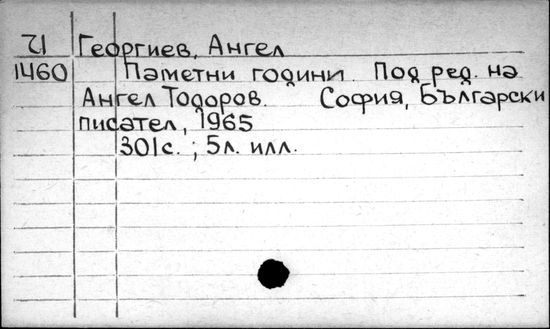 21 Георгиев, Ангел
1460 Паметни години. Под ред. на
Ангел Тодоров. София, Български
писател, 1965
301с. ; 5л. илл.